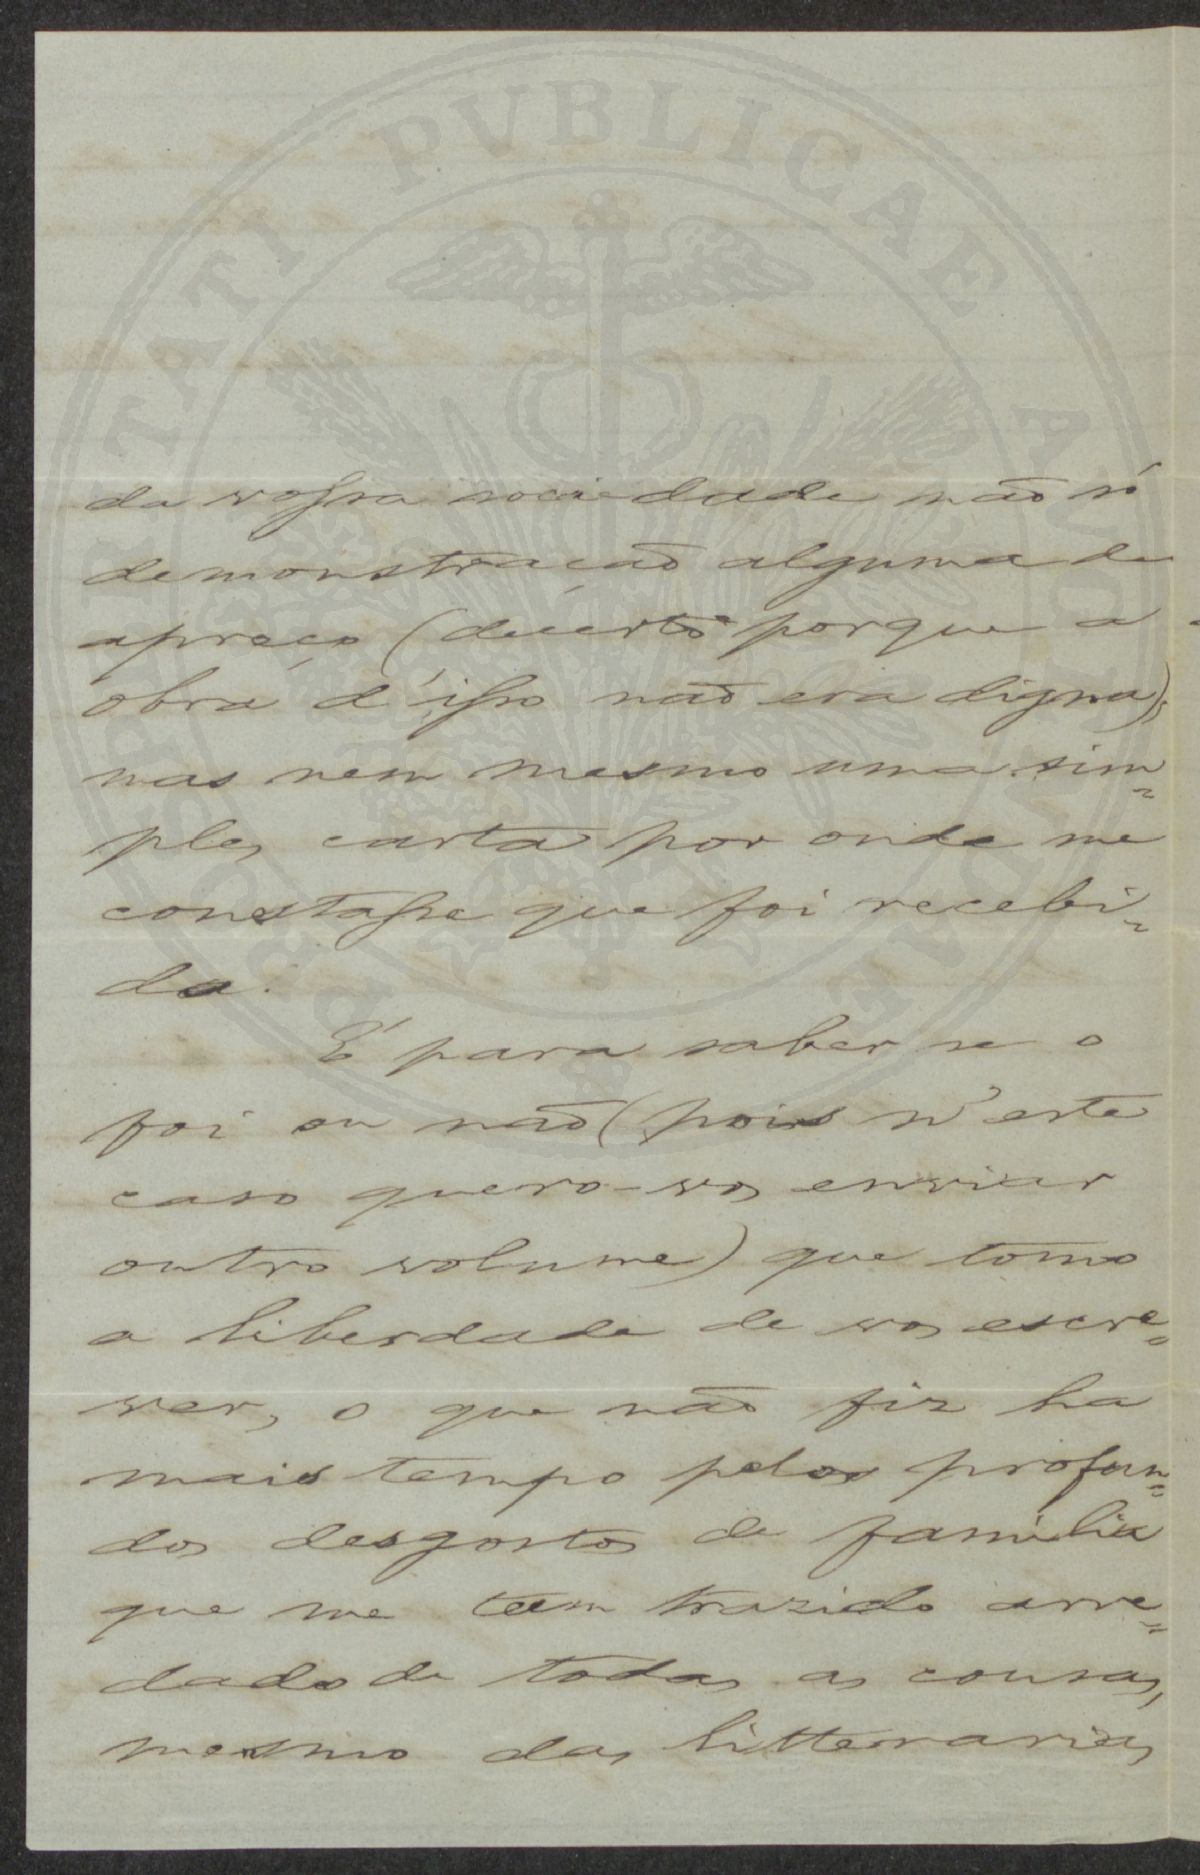 PROSPERITATI PUBLICAE AUGENDAE
da vossa sociedade não só
demonstração alguma de
apreço (decerto porque a
obra d'isso não era digna),
mas nem mesmo uma sim-
ples carta por onde me
constasse que foi recebi-
da.
É para saber se o
foi ou não (pois n'este
caso quero-vos enviar
outro volume) que tomo
a liberdade de vos escre-
ver, o que não fiz ha
mais tempo pelos profun-
dos desgostos de familia
que me tem trazido arre-
dado de todas as cousas,
mesmo das litterarias